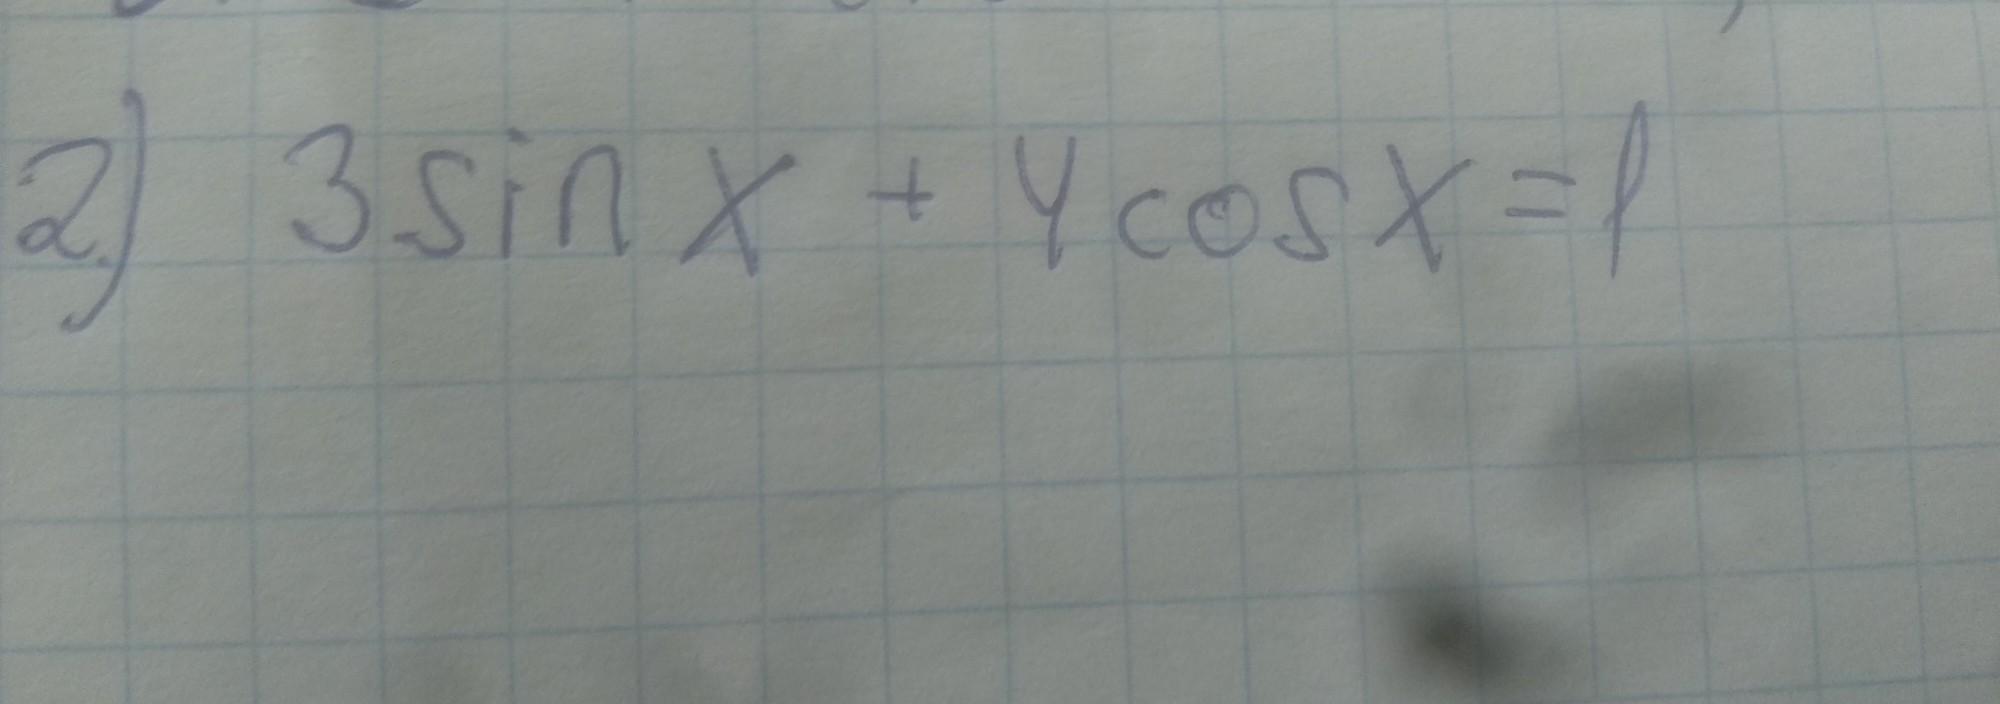 2) 3 sin x + 4 cos x = 1